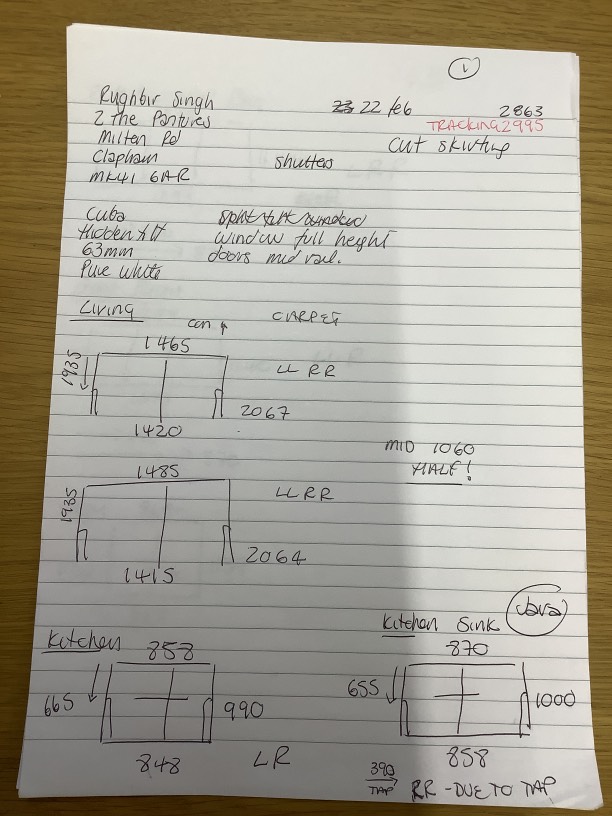 1
Rughbir Singh 23 22 feb 2863
2 the Pastures TRACKING 2995
Milton Rd cut skirting
Clapham shutters
MK41 6AR
Cuba split tilt
Hidden tilt window full height
63mm doors mid rail.
Pure white
Living can CARPET
1465
1935 LL RR
2067
1420
MID 1060
HALF!
1485
1935 LLRR
2064
1415
Java
Kitchen Kitchen Sink
858 870
665 990 655 1000
848 LR 858
390
TAP RR - DUE TO TAP